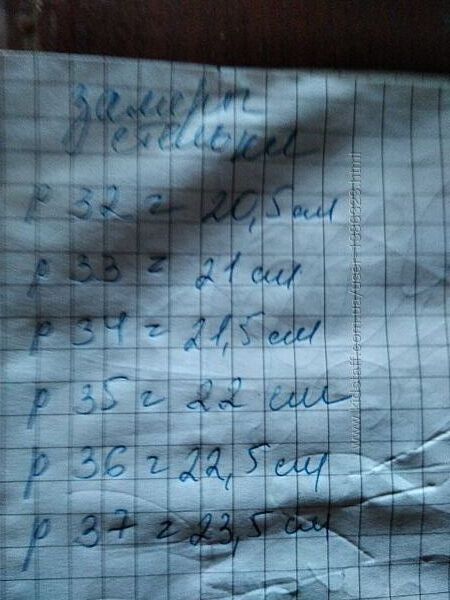 замеры
стельки
р 32 = 20,5 см
р 33 = 21 см
р 34 = 21,5 см
р 35 = 22 см
р 36 = 22,5 см
р 37 = 23,5 см
www.kidstaff.com.ua/user-1386323.html